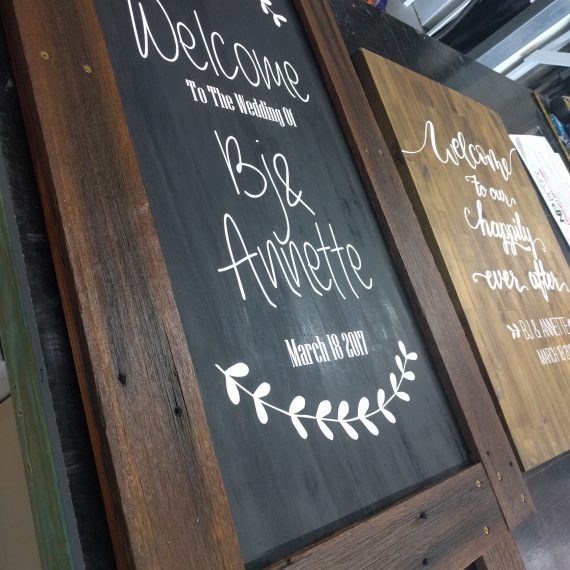 Welcome
To The Wedding Of
Bj &
Annette
March 18 2017
Welcome
to our
happily
ever after
BJ & ANNETTE
MARCH 18 20